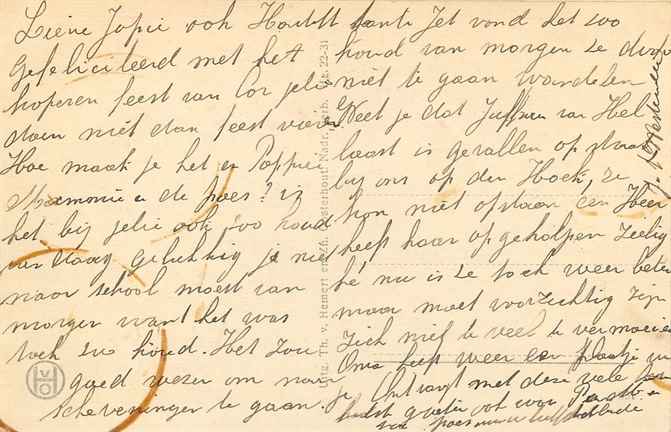 Lieve Jopie ook Hartelt
Gefeliciteerd met het
koperen feest van Cor jelie
doen niet dan feest vieren
Hoe maak je het en Poppie
Mammie en de poes? is
het bij jelie ook zoo koud
van daag gelukkig je niet
naar school moest van
morgen want het was
toch zoo koud. Het zou
goed wezen om naar
scheveningen te gaan.
tante Jet vond het zoo
koud van morgen ze durfde
niet te gaan wandelen
Weet je dat Juffrouw van Hel
laast is gevallen op straat
bij ons op den Hoek, ze
kon niet opstaan een Heer
heeft haar op geholpen Zeelig
hé nu is ze toch weer beter
maar moet voorzichtig zijn
zich niet te veel te vermoeien
Oma heeft weer een plaatje voor
je Ontvangt met deze vele
groeten ook van
Uitg. Th. v. Hemert en Zn. Oosterhout Nadr. verb. 22-31
VHO